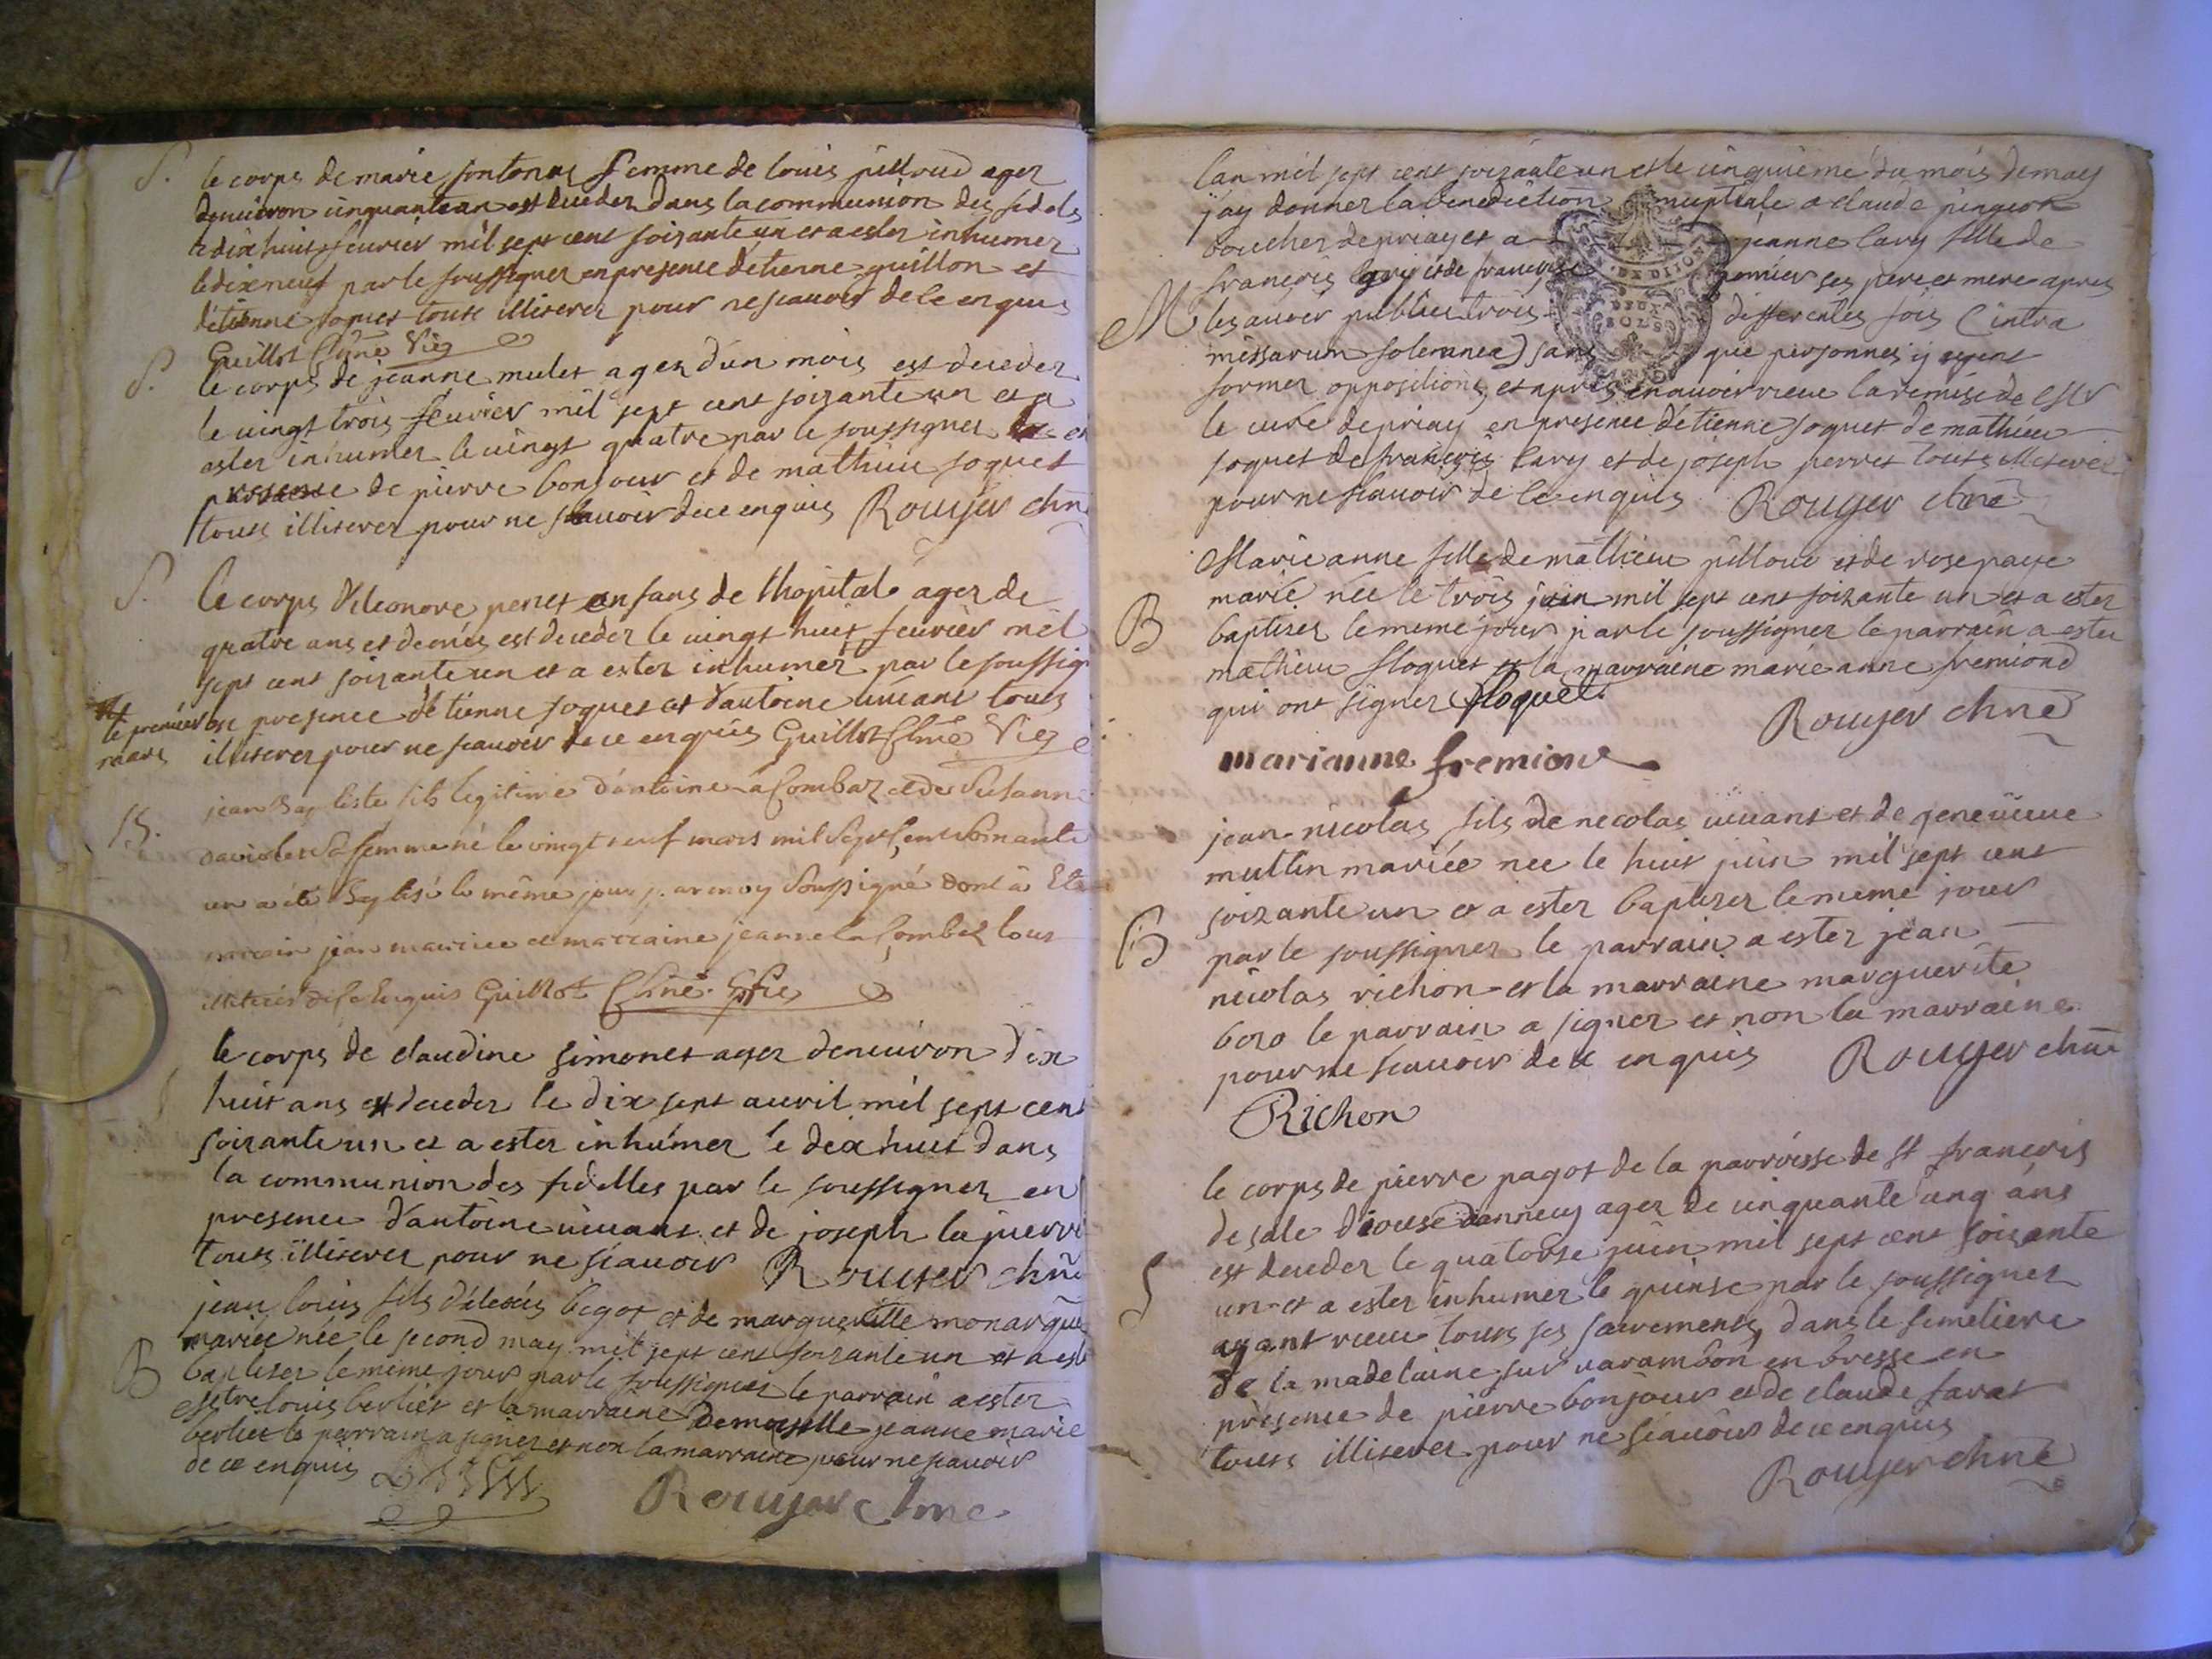 S.
le corps de marie fontanas femme de louis pilloud ager
denuiron cinquante an est deceder dans la communion des fidels
le dix huit feurier mil sept cent soixante un et a ester inhumer
le dix neuf par le soussigner en presence detienne guillon et
detienne soquet touts illiterez pour ne scauoir de ce enquis
Guillot
S.
le corps de jeanne mulet ager d'un mois est deceder
le uingt trois feurier mil sept cent soixante un et a
ester inhumer le uingt quatre par le soussigner
presence de pierre bonjour et de mathieu soquet
touts illiterez pour ne scauoir de ce enquis Rouyer chne
S.
le corps deleonore perret enfans de lhopital ager de
quatre ans et demis est deceder le uingt huit feurier mil
sept cent soixante un et a ester inhumer par le soussig
le premier mars
en presence detienne soquet et dantoine uiuant touts
illiterez pour ne scauoir de ce enquis Guillot
B.
jean baptiste fils legitime d'antoine la Combaz et de Susanne
sa femme né le vingt neuf mars mil Sept Cent Soixante
un a été baptisé le même jour par moy Soussigné dont a Eté
parrain jean maurice et marraine jeanne la Combaz tous
illiterés de ce Enquis Guillot
S
le corps de claudine simonet ager denuiron dix
huit ans est deceder le dix sept auril mil sept cent
soixante un et a ester inhumer le dix huit dans
la communion des fidelles par le soussigner en
presence d'antoine uiuant et de joseph
touts illiterez pour ne scauoir Rouyer chne
jean louis fils d'alexis bigot et de marguerite
mariée née le second may mil sept cent soixante un et a este
B
baptiser le meme jour par le soussigner le parrain a ester
louis berliet et la marraine demoiselle jeanne marie
berliet le parrain a signer et non la marraine pour ne scauoir
de ce enquis
Rouyer chne
lan mil sept cent soixante un et le cinquieme du mois de may
jay donner la benediction nuptiale a claude pingeon
boucher de priay et a jeanne lary fille de
francois lary et de francoise ses pere et mere apres
M
les auoir publier trois differentes fois (intra
missarum solemnea) sans que personnes y ayent
former oppositions, et apres en auoir receu la remise de Mr
le curé de priay en presence detienne soquet de mathieu
soquet de francois lary et de joseph perret touts illiterez
pour ne scauoir de ce enquis Rouyer chne
Marie anne fille de mathieu pilloud et de rose paye
marié née le trois juin mil sept cent soixante un et a ester
B
baptiser le meme jour par le soussigner le parrain a ester
mathieu floquet et la marraine marie anne fremiond
qui ont signer floquet
Rouyer chne
marianne fremion
jean nicolas fils de necolas uiuant et de geneuieue
mariée nee le huit juin mil sept cent
soixante un et a ester baptiser le meme jour
B
par le soussigner le parrain a ester jean
nicolas richon et la marraine marguerite
bozo le parrain a signer et non la marraine
pour ne scauoir de ce enquis Rouyer chne
Richon
le corps de pierre pagot de la parroisse de st francois
de sale diocese danneuy ager de cinquante cinq ans
est deceder le quatorse juin mil sept cent soixante
S
un et a ester inhumer le quinse par le soussigner
ayant receu touts ses sacrements, dans le semetiere
de la madelaine sur uarambon en bresse en
presence de pierre bonjour et de claude farat
touts illiterez pour ne scauoir de ce enquis
Rouyer chne
DEUX
SOLS